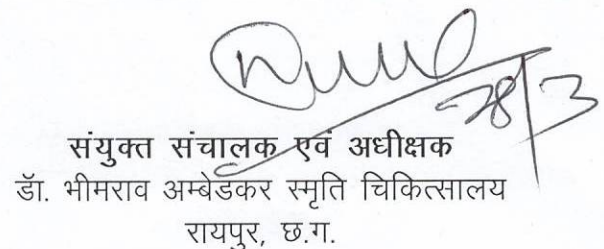 28/3
संयुक्त संचालक एवं अधीक्षक
डॉ. भीमराव अम्बेडकर स्मृति चिकित्सालय
रायपुर, छ.ग.